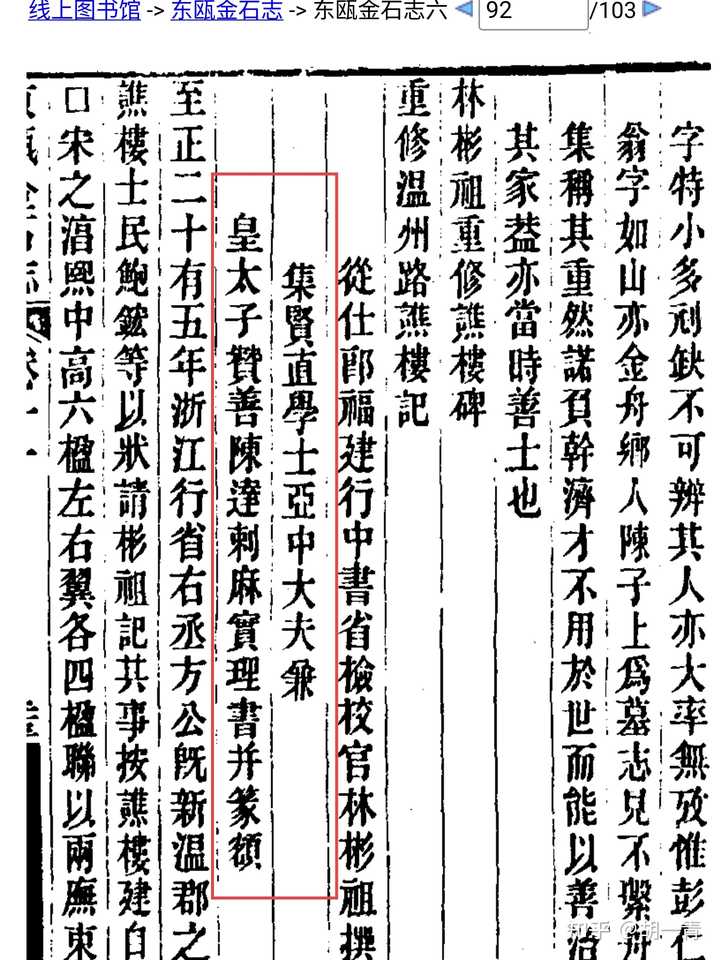 线上图书馆 -> 东瓯金石志 -> 东瓯金石志六 92 /103
字特小多刓缺不可辨其人亦大率無攷惟彭仁
翁字如山亦金舟鄉人陳子上爲墓志見不繫舟
集稱其重然諾負幹濟才不用於世而能以善治
其家葢亦當時善士也
林彬祖重修譙樓碑
重修温州路譙樓記
從仕郎福建行中書省檢校官林彬祖撰
集賢直學士亞中大夫兼
皇太子贊善陳達剌麻實理書并篆額
至正二十有五年浙江行省右丞方公旣新温郡之
譙樓士民鮑鋐等以狀請彬祖記其事按譙樓建自
□宋之湻熙中高六楹左右翼各四楹聯以兩廡東
知乎 @胡一青